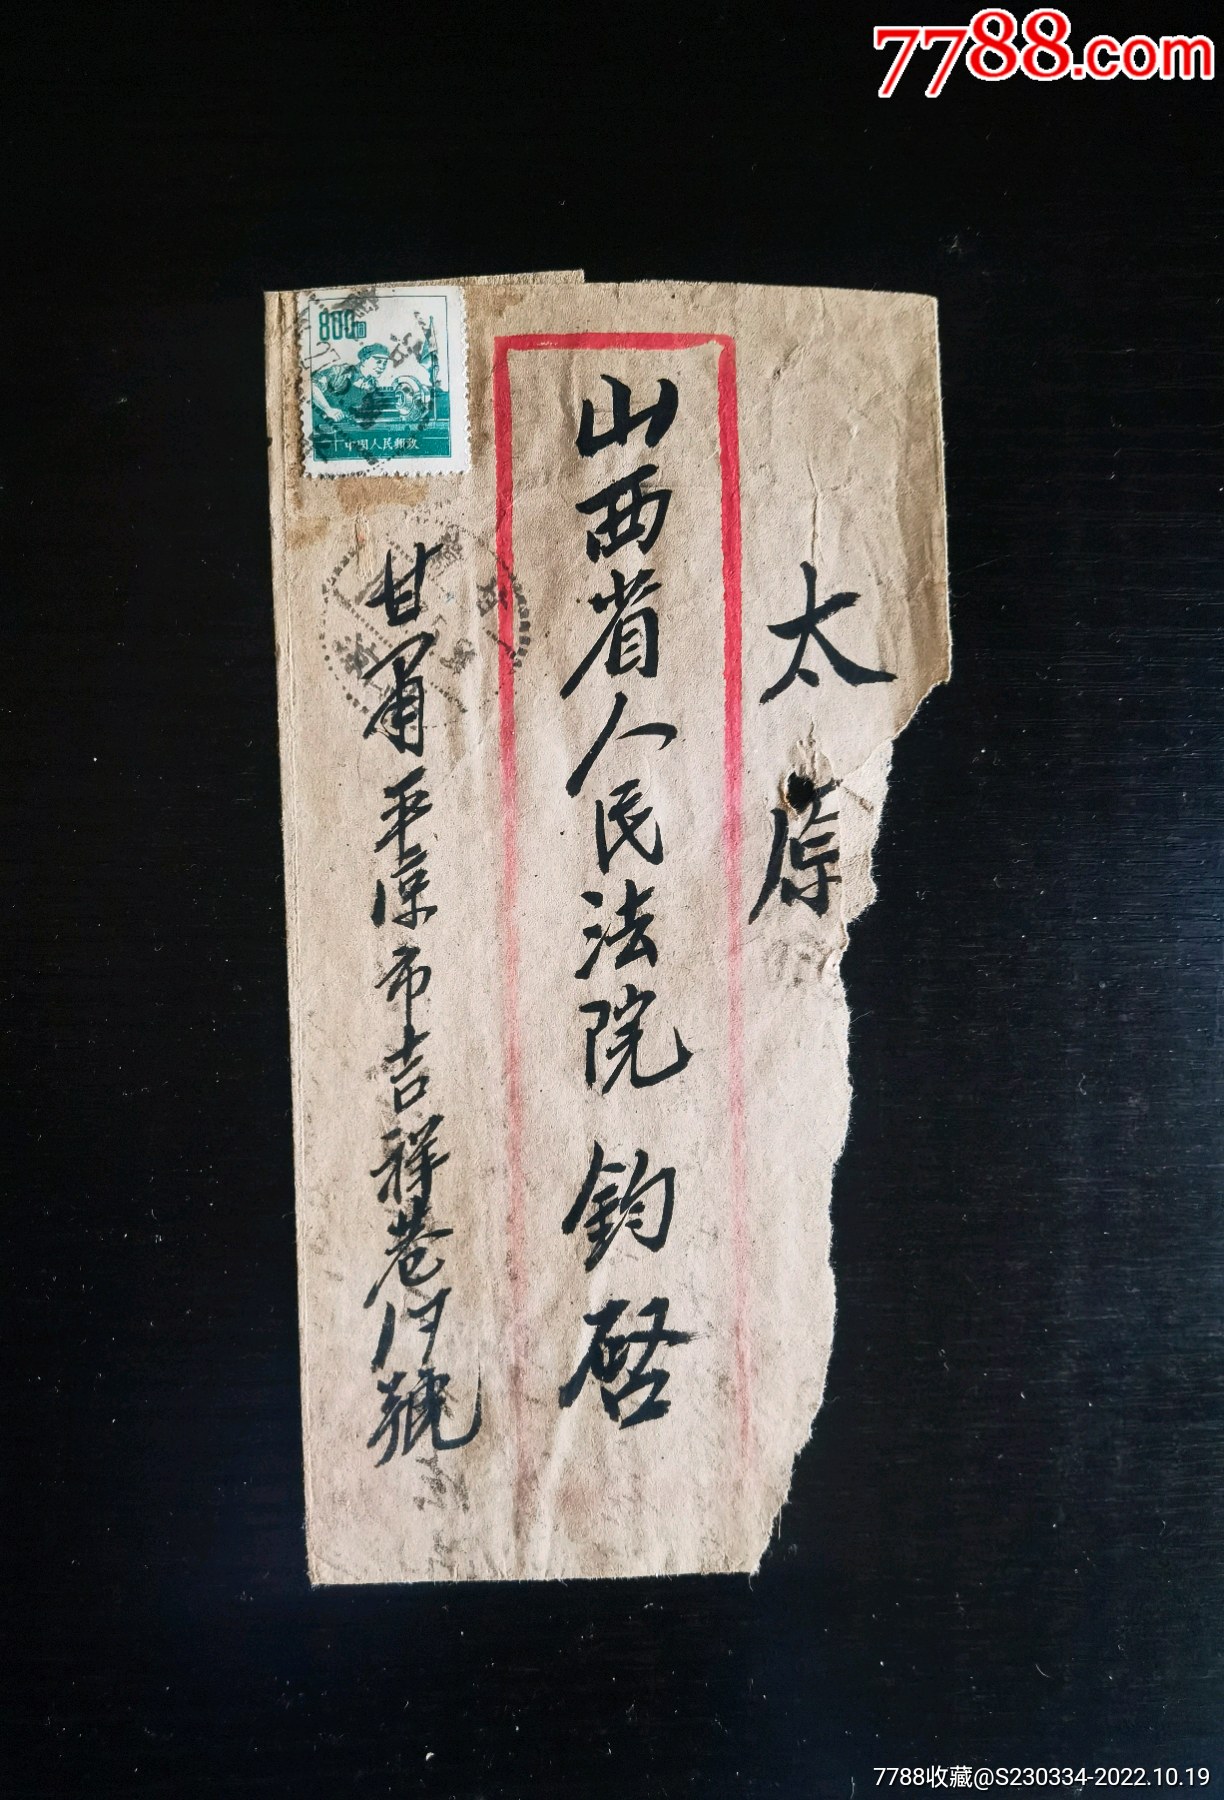 7788.com
800圓
中國人民郵政
太原
山西省人民法院 鈞啓
甘肅平涼市吉祥巷號
7788收藏@S230334-2022.10.19